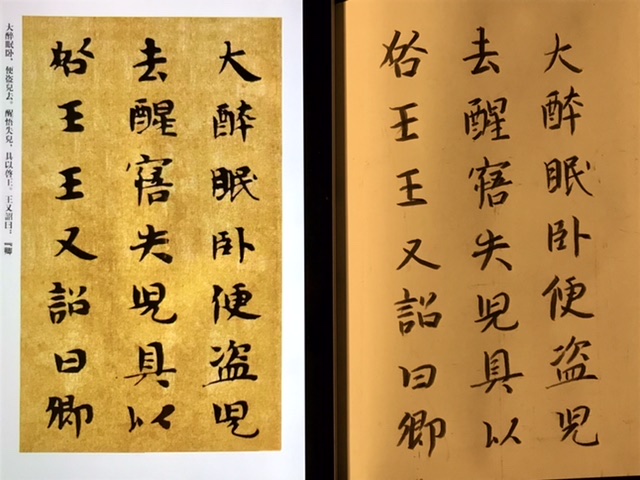 大醉眠卧便盗兒
去醒寤失兒具以
啓王王又詔曰卿
大醉眠卧，便盗兒去。醒悟失兒，具以啓王。王又詔曰：『卿
大醉眠卧便盗兒
去醒寤失兒具以
啓王王又詔曰卿